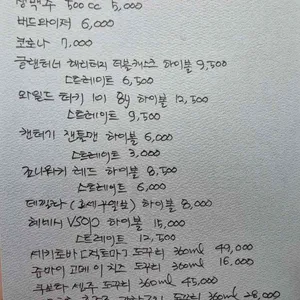 생맥주 500cc 5,000
버드와이저 6,000
코로나 7,000
글렌터너 헤리티지 더블캐스크 하이볼 9,500
스트레이트 6,500
와일드 터키 101 8y 하이볼 12,500
스트레이트 9,500
캔터키 잰틀맨 하이볼 6,000
스트레이트 3,000
조니워키 레드 하이볼 8,500
스트레이트 6,000
데낄라 (호세쿠엘보) 하이볼 8,000
헤네시 VSOP 하이볼 15,000
스트레이트 12,500
도꾸리 360ml 49,000
준마이 고메이치즈 도꾸리 360ml 16,000
쿠보타 센쥬 도꾸리 360ml 45,000
도꾸리 360ml 28,000